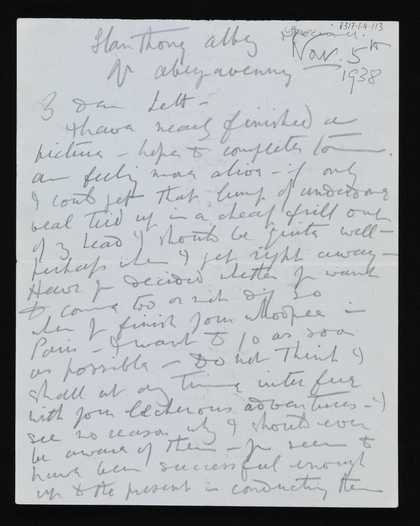 8317.1.4.113
Llanthony abbey
Nr abergavenny
Nov. 5th
1938
Dear Lett -
I have nearly finished a
picture - hope to complete tom
am feeling more alive - if only
I could get that lump of underdone
veal tied up in a cheap frill out
of my head I should be quite well -
perhaps when I get right away -
Have you decided whether you want
to come too or not & if so
when you finish your whoopee in
Paris - I want to go as soon
as possible - Do not think I
shall at any time interfere
with your lecherous adventures - I
see no reason why I should ever
be aware of them - you seem to
have been successful enough
up to the present in conducting them